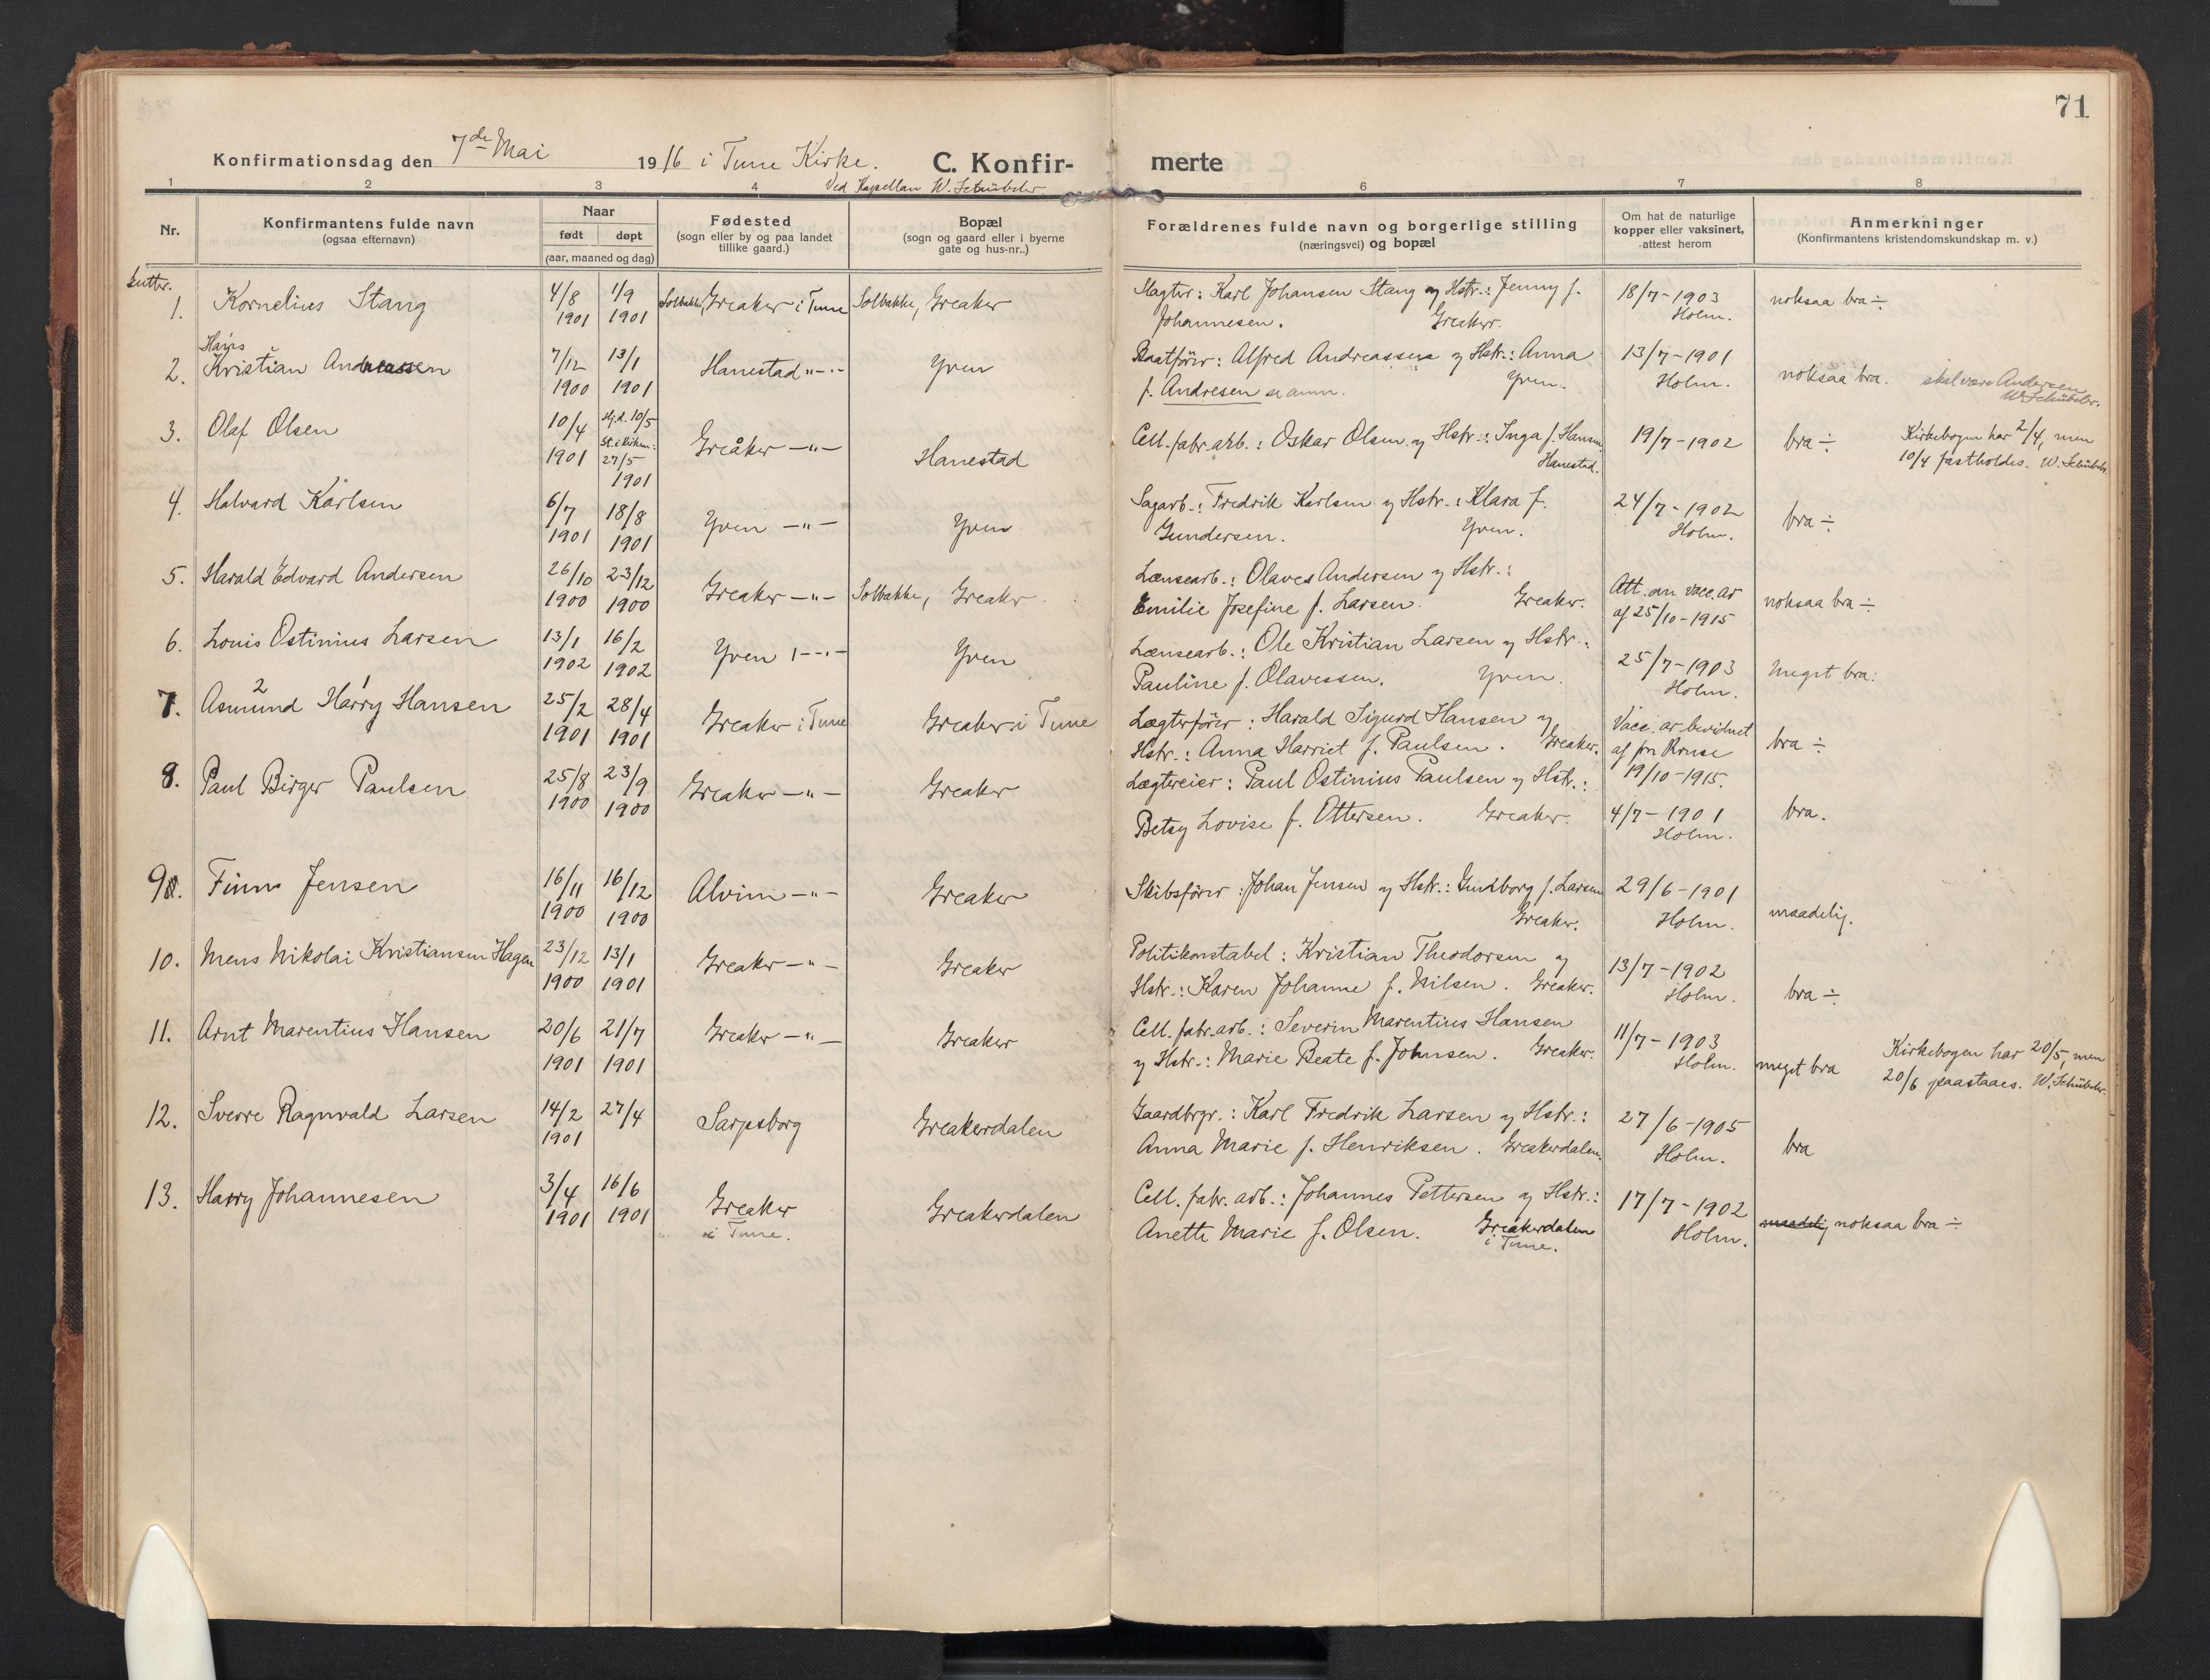 71
Konfirmationsdag den 7de Mai 1916 i Tune Kirke. C. Konfir-
merte
Ved Kapellan W. Schübeler.
1 2 3 4 6 7 8
Nr.
Konfirmantens fulde navn
(ogsaa efternavn)
Naar
født døpt
(aar, maaned og dag)
Fødested
(sogn eller by og paa landet
tillike gaard.)
Bopæl
(sogn og gaard eller i byerne
gate og hus-nr..)
Forældrenes fulde navn og borgerlige stilling
(næringsvei) og bopæl
Om hat de naturlige
kopper eller vaksinert,
attest herom
Anmerkninger
(Konfirmantens kristendomskundskap m. v.)
Gutter.
1. Kornelius Stang 4/8 1901 1/9 1901 Solbakke, Greaker i Tune Solbakke, Greaker
Slagter: Karl Johansen Stang og Hstr.: Jenny f.
Johannesen. Greaker.
18/7-1903
Holm.
noksaa bra ÷
Hans
2. Kristian Andreassen 7/12 1900 13/1 1901 Hanestad -"- Yven
Baatfører: Alfred Andreassen og Hstr.: Anna
f. Andresen se anm. Yven.
13/7-1901
Holm.
noksaa bra.
skal være Andersen
W. Schübeler.
3. Olaf Olsen 10/4 1901 Hj.d. 10/5
St. i Kirken:
27/5
1901
Greåker -"- Hanestad
Cell.fabr.arb.: Oskar Olsen og Hstr.: Inga f. Hansen
Hanestad.
19/7-1902
bra ÷
Kirkebogen har 2/4, men
10/4 fastholdes. W. Schübeler.
4. Halvard Karlsen 6/7 1901 18/8 1901 Yven -"- Yven
Sagarb.: Fredrik Karlsen og Hstr.: Klara f.
Gundersen. Yven.
24/7-1902
Holm.
bra ÷
5. Harald Edvard Andersen 26/10 1900 23/12 1900 Greaker -"- Solbakke, Greaker
Lænsearb.: Olaves Andersen og Hstr.:
Emilie Josefine f. Larsen. Greaker.
Att. om vacc. ar
af 25/10-1915
noksaa bra ÷
6. Louis Ostinius Larsen 13/1 1902 16/2 1902 Yven -"- Yven
Lænsearb.: Ole Kristian Larsen og Hstr.:
Pauline f. Olavessen. Yven.
25/7-1903
Holm.
Meget bra.
2 1
7. Asmund Harry Hansen 25/2 1901 28/4 1901 Greaker i Tune Greaker i Tune
Lægterfører: Harald Sigurd Hansen og
Hstr.: Anna Harriet f. Paulsen. Greaker.
Vacc. ar bevidnet
af frk Kruse
19/10-1915.
bra ÷
8. Paul Birger Paulsen 25/8 1900 23/9 1900 Greaker -"- Greaker
Lægtereier: Paul Ostinius Paulsen og Hstr.:
Betsy Lovise f. Ottersen. Greaker.
4/7-1901
Holm.
bra.
9. Finn Jensen 16/11 1900 16/12 1900 Alvim -"- Greaker
Skibsfører: Johan Jensen og Hstr.: Gundborg f. Larsen
Greaker.
29/6-1901
Holm.
maadelig.
10. Mens Nikolai Kristiansen Hagen 23/12 1900 13/1 1901 Greaker -"- Greaker
Politikonstabel: Kristian Theodorsen og
Hstr.: Karen Johanne f. Nilsen. Greaker.
13/7-1902
Holm.
bra ÷
11. Arnt Marentius Hansen 20/6 1901 21/7 1901 Greaker -"- Greaker
Cell.fabr.arb.: Severin Marentius Hansen
og Hstr.: Marie Beate f. Johnsen. Greaker.
11/7-1903
Holm.
meget bra
Kirkebogen har 20/5, men
20/6 paastaaes. W. Schübeler.
12. Sverre Ragnvald Larsen 14/2 1901 27/4 Sarpsborg Greakerdalen
Gaardbrgr.: Karl Fredrik Larsen og Hstr.:
Anna Marie f. Henriksen. Greakerdalen.
27/6-1905
Holm.
bra
13. Harry Johannesen 3/4 1901 16/6 1901 Greaker
i Tune.
Greakerdalen
Cell. fabr. arb.: Johannes Pettersen og Hstr.:
Anette Marie f. Olsen. Greakerdalen
i Tune.
17/7-1902
Holm.
maadelig noksaa bra ÷